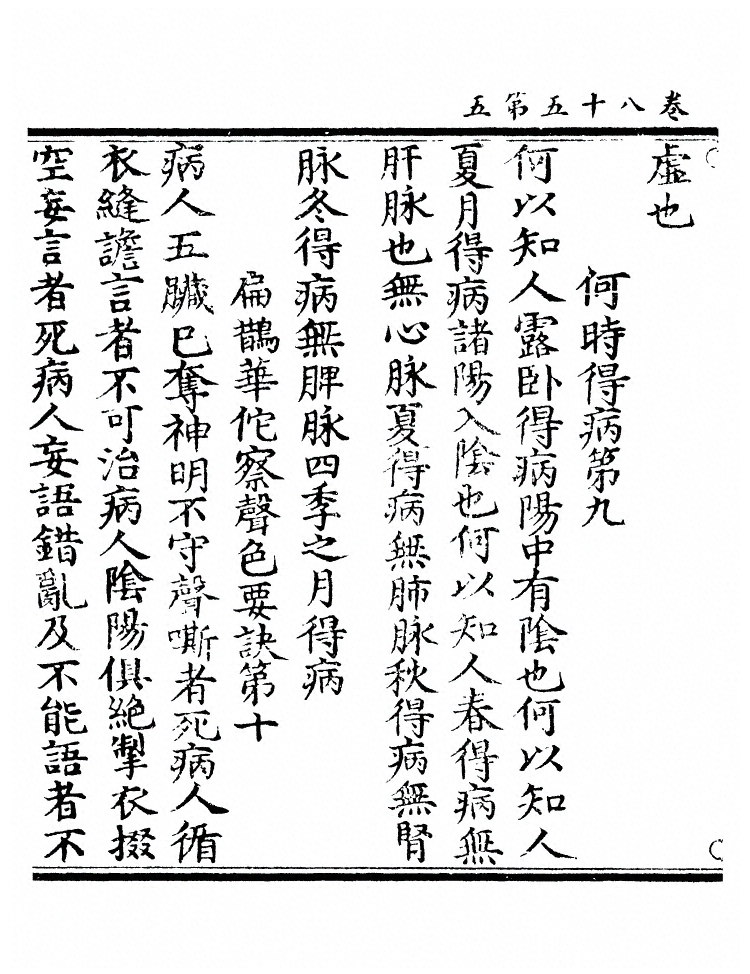 卷八十五第五
虛也
何時得病第九
何以知人露卧得病陽中有陰也何以知人
夏月得病諸陽入陰也何以知人春得病無
肝脉也無心脉夏得病無肺脉秋得病無腎
脉冬得病無脾脉四季之月得病
扁鵲華佗察聲色要訣第十
病人五臟已奪神明不守聲嘶者死病人循
衣縫譫言者不可治病人陰陽俱絕掣衣掇
空妄言者死病人妄語錯亂及不能語者不